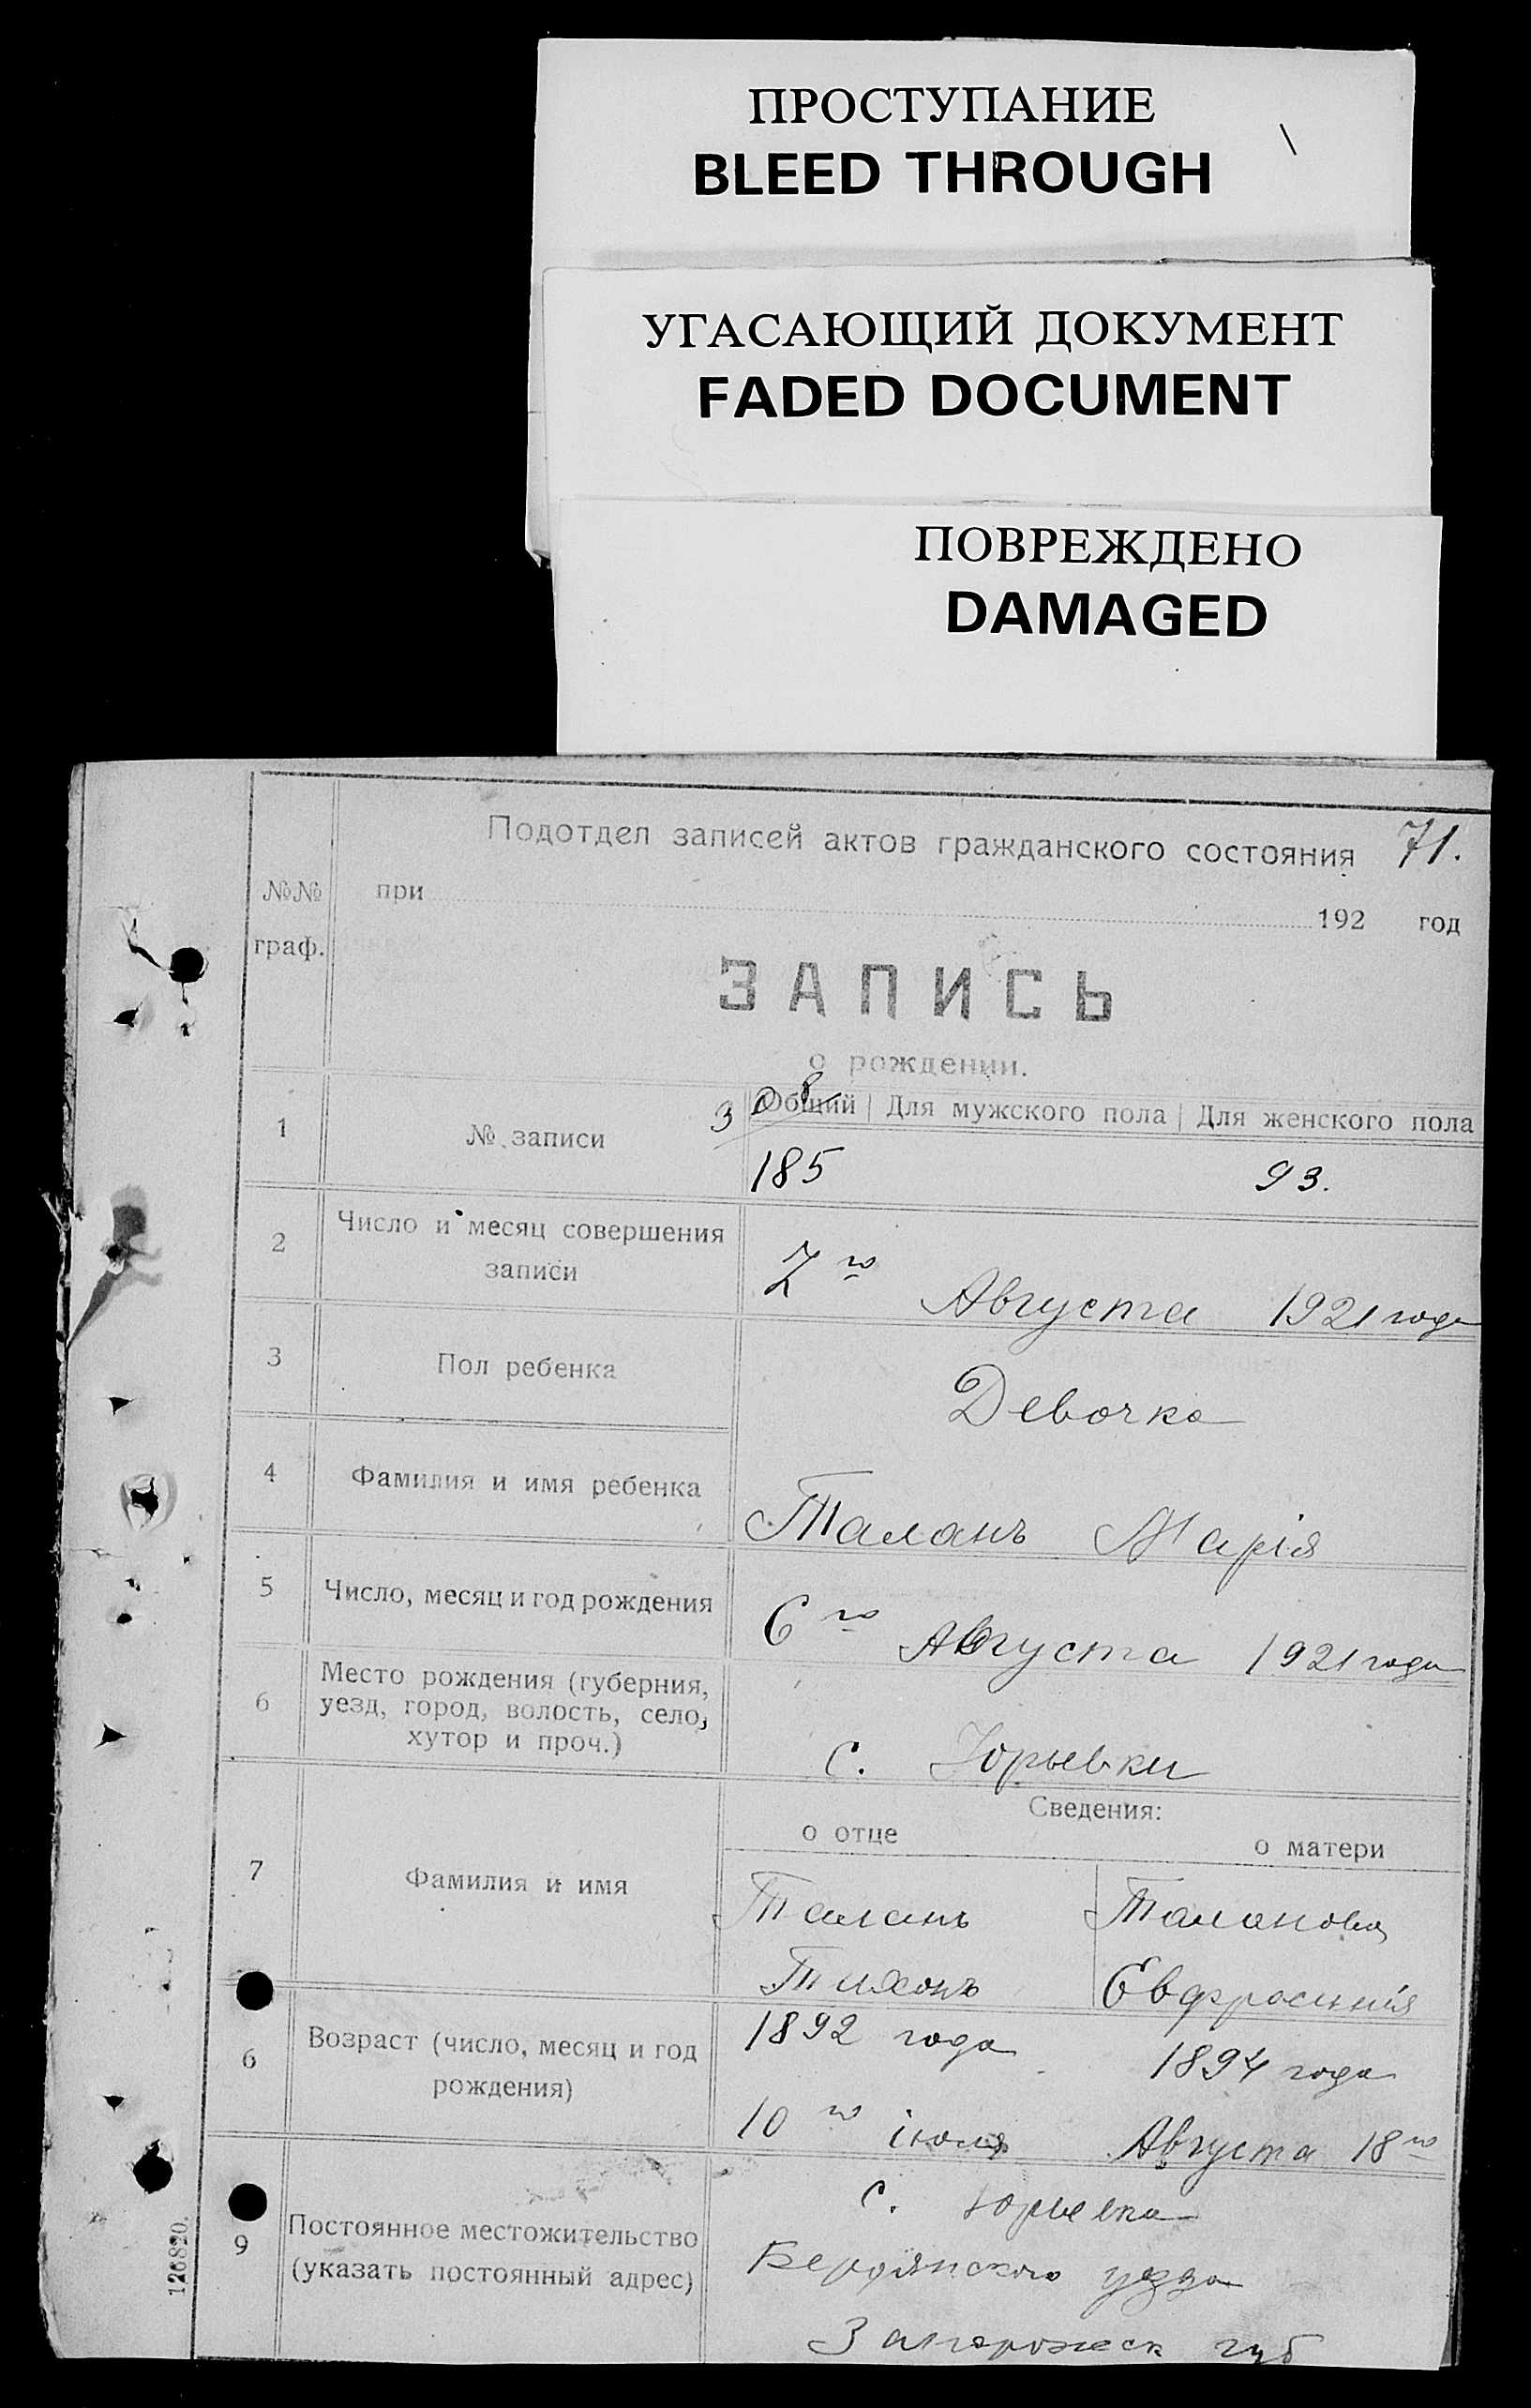 ПРОСТУПАНИЕ
BLEED THROUGH
УГАСАЮЩИЙ ДОКУМЕНТ
FADED DOCUMENT
ПОВРЕЖДЕНО
DAMAGED
Подотдел записей актов гражданского состояния 71.
№№ граф.
при 192 год
ЗАПИСЬ
о рождении.
1 № записи
Общий Для мужского пола Для женского пола
185 93.
2 Число и месяц совершения записи
го Августа 1921 года
3 Пол ребенка
Девочка
4 Фамилия и имя ребенка
Таланъ Марія
5 Число, месяц и год рождения
6 го Августа 1921 года
6 Место рождения (губерния, уезд, город, волость, село, хутор и проч.)
с. Юрьевки
Сведения:
о отце о матери
7 Фамилия и имя
Таланъ Таланова
Тихонъ Евфросинія
6 Возраст (число, месяц и год рождения)
1892 года 1894 года
10 го іюля Августа 18 го
9 Постоянное местожительство (указать постоянный адрес)
с. Юрьевка
Бердянского уезда
Запорожск губ
126820.